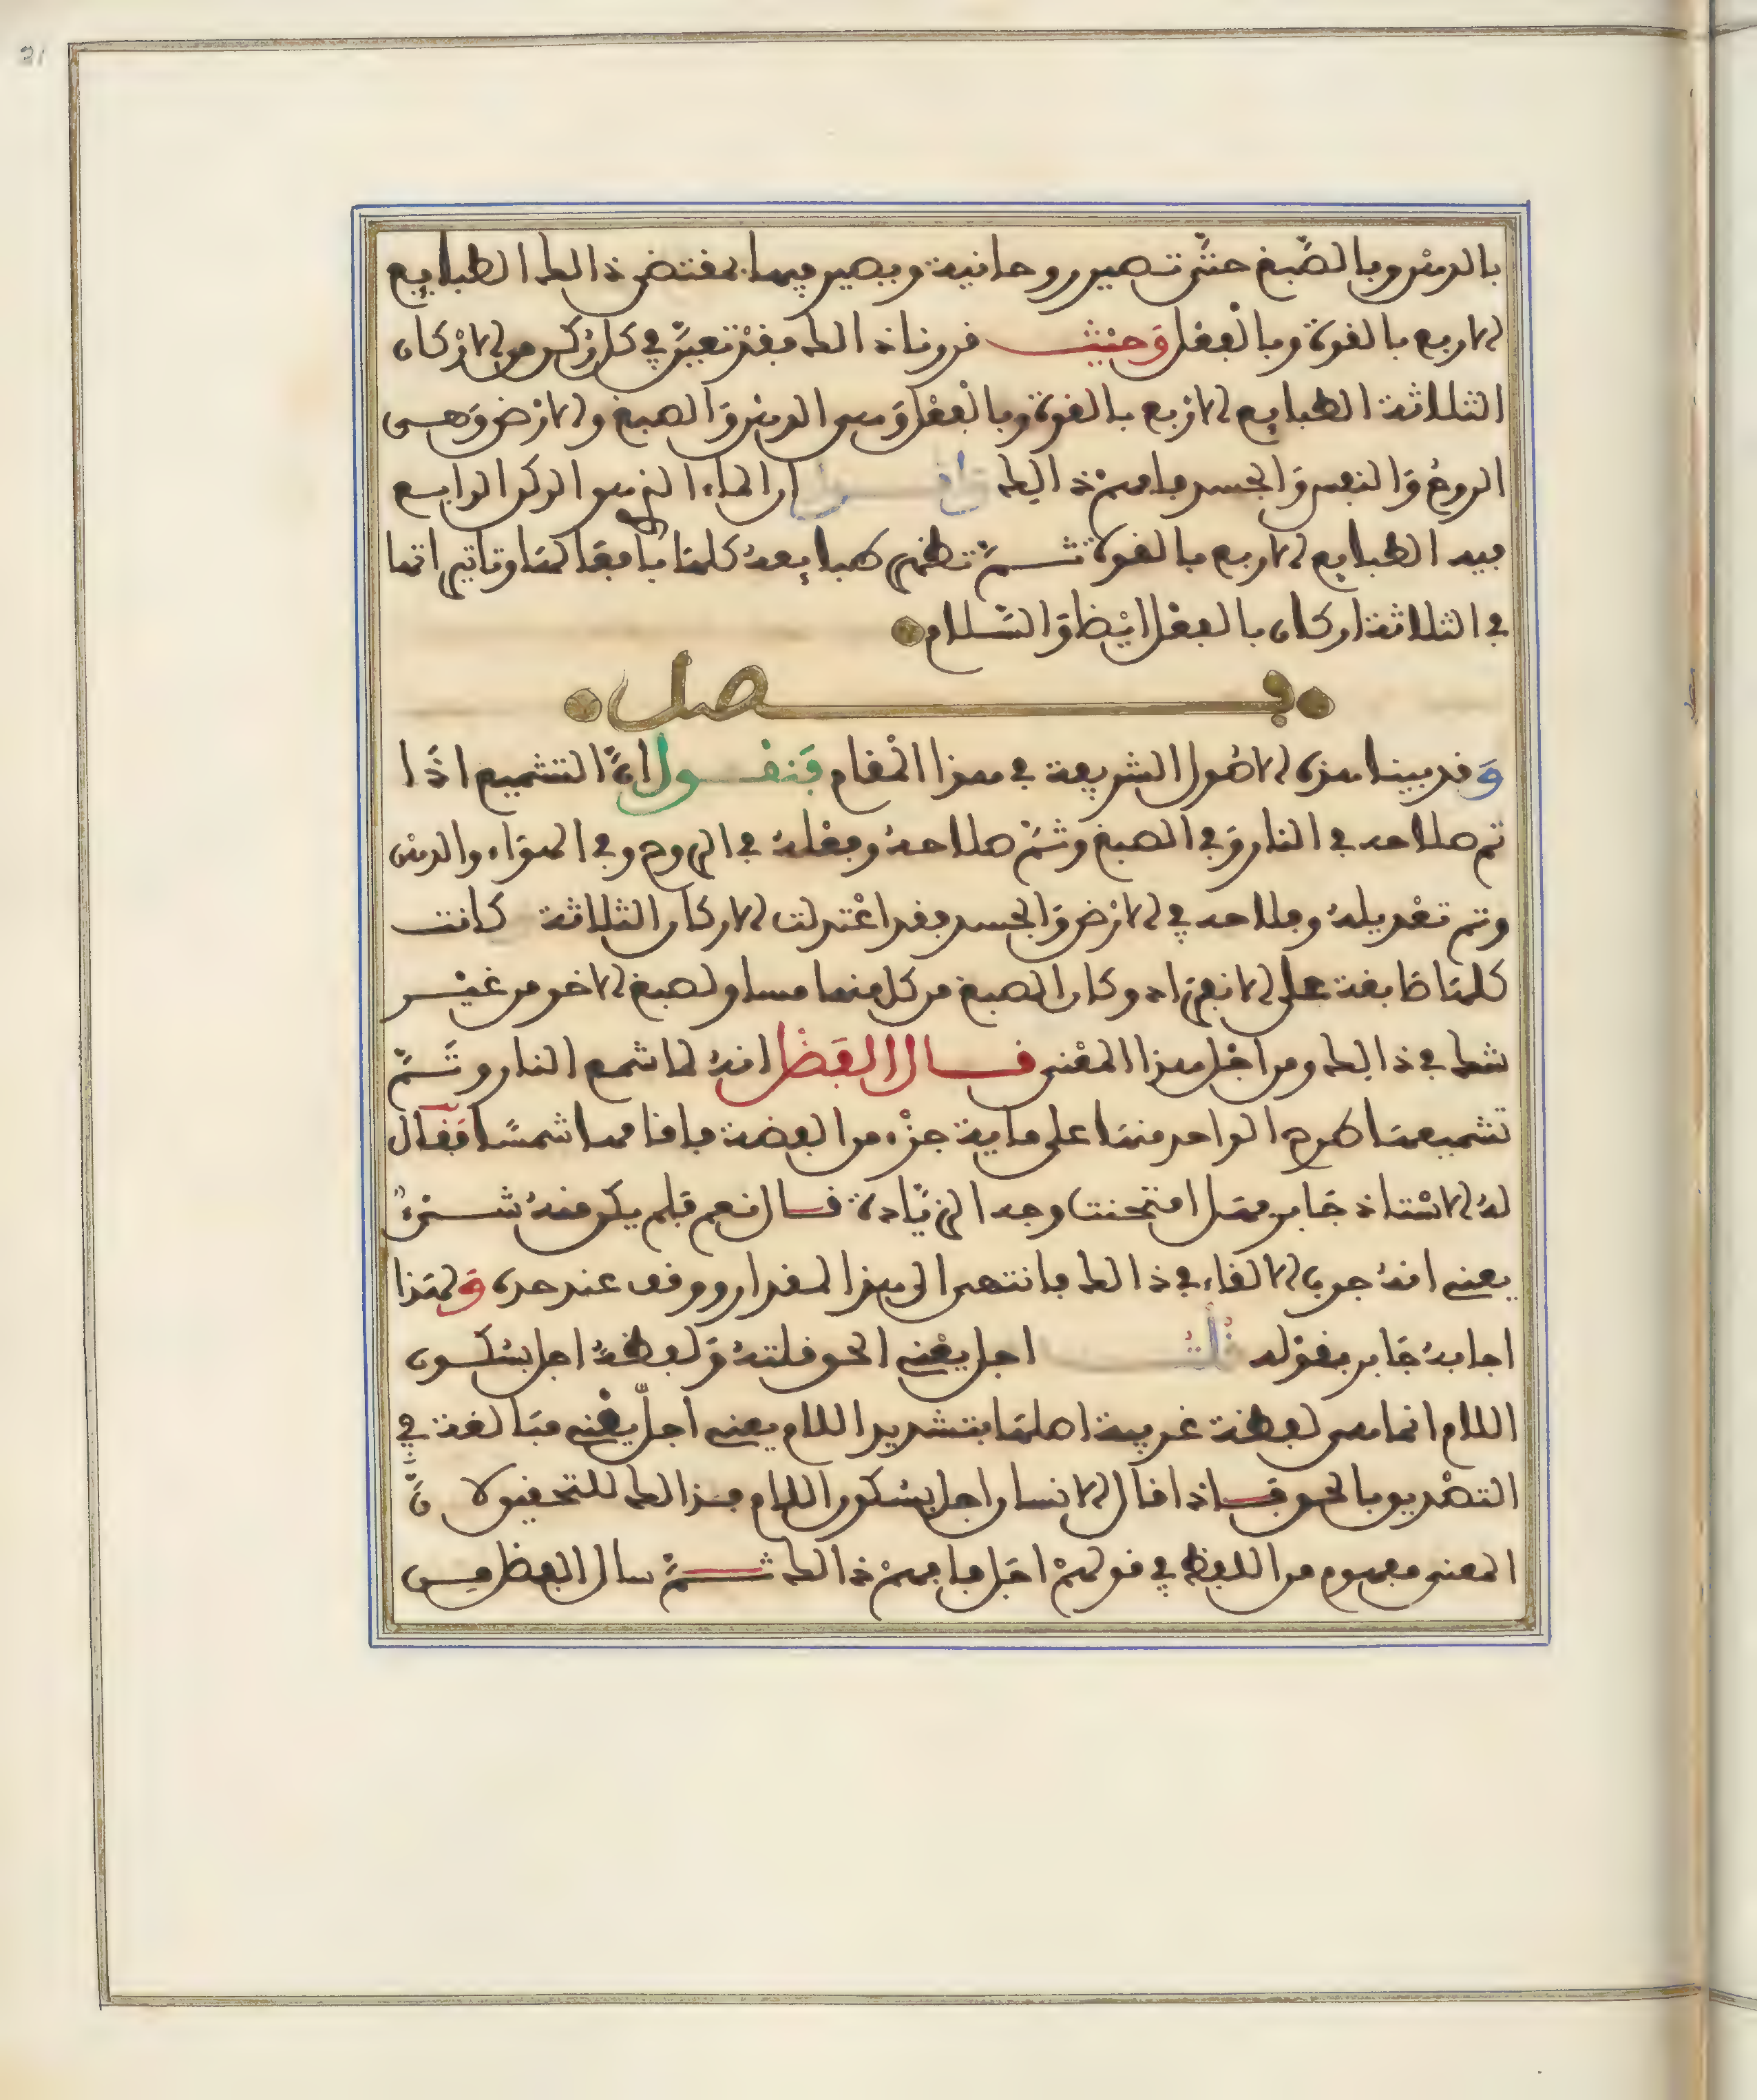 31
بالدهن وبالصّبغ حتّى تصير روحانية ويصير فيها بمقتضى ذالك الطبايع
الاربع بالقوة وبالْفِعْل وَحَيْثُ قررنا ذالك فقدْ تعيّن في كل رُكن من الارْكان
الثلاثة الطبايع الارْبع بالقوة وبالْفعْل وَهي الدهن وَالصبغ والارْض وَهي
الروحُ وَالنفس وَالجسد فافهمْ ذالك وَاقول ان الماء الذي هو الركن الرابع
فيه الطبايع الاربع بالقوة ثمَّ تظهر طبايعهُ كلها بافعالها وتاثيراتها
في الثلاثة اركان بالفعْل ايْضا وَالسّلام
فصل
وَقد بينا هذه الاصُول الشريعة في هذا الْمقام فَنقول انَّ التشميع اذَا
تم صلاحه في النار وَفي الصبغ وثمّ صلاحهُ وفعْلهُ في الروح وفي الهوَاء والدهن
وتم تعْديلهُ وصلاحه في الارْض وَالجسد فقد اعْتدلت الاركان الثلاثة كانت
كلهَا صَابغة على الانفراد وكان الصبغ من كل منها مساو لصبغ الاخر من غيْر
شك في ذالك ومن اجْل هذا المعْنى قال الفَضْل انهُ لما شمع النار وتَمَّ
تشميعهَا طرح الواحد منهَا على ماية جزْء من الفضة فاقامها شمسًا فَقَال
لهُ الاسْتاذ جَابر هَل امتحنت وجه الزيَادة قال نعم فَلم يكن منهُ شيء
يعني انهُ جرب الالقاء في ذالك فانتهى الى هذا المقدار ووقف عند حده وَلهَذا
اجابهُ جَابر بقوْله قُلْتُ اجل يعْني الحق قلتهُ وَلفظةُ اجل بسُكون
اللام انما هي لفظة غريبة اصلهَا بتشديد اللام يعني اجلّ يعْني مبَالغة في
التصْديق بالحق فَاذا قال الانسان اجل بسُكون اللام فذالك للتخفيف لانَّ
المعنى مفهوم من اللفظ في قولهمْ اجَل فافهمْ ذالك ثمَّ سال الفضل من